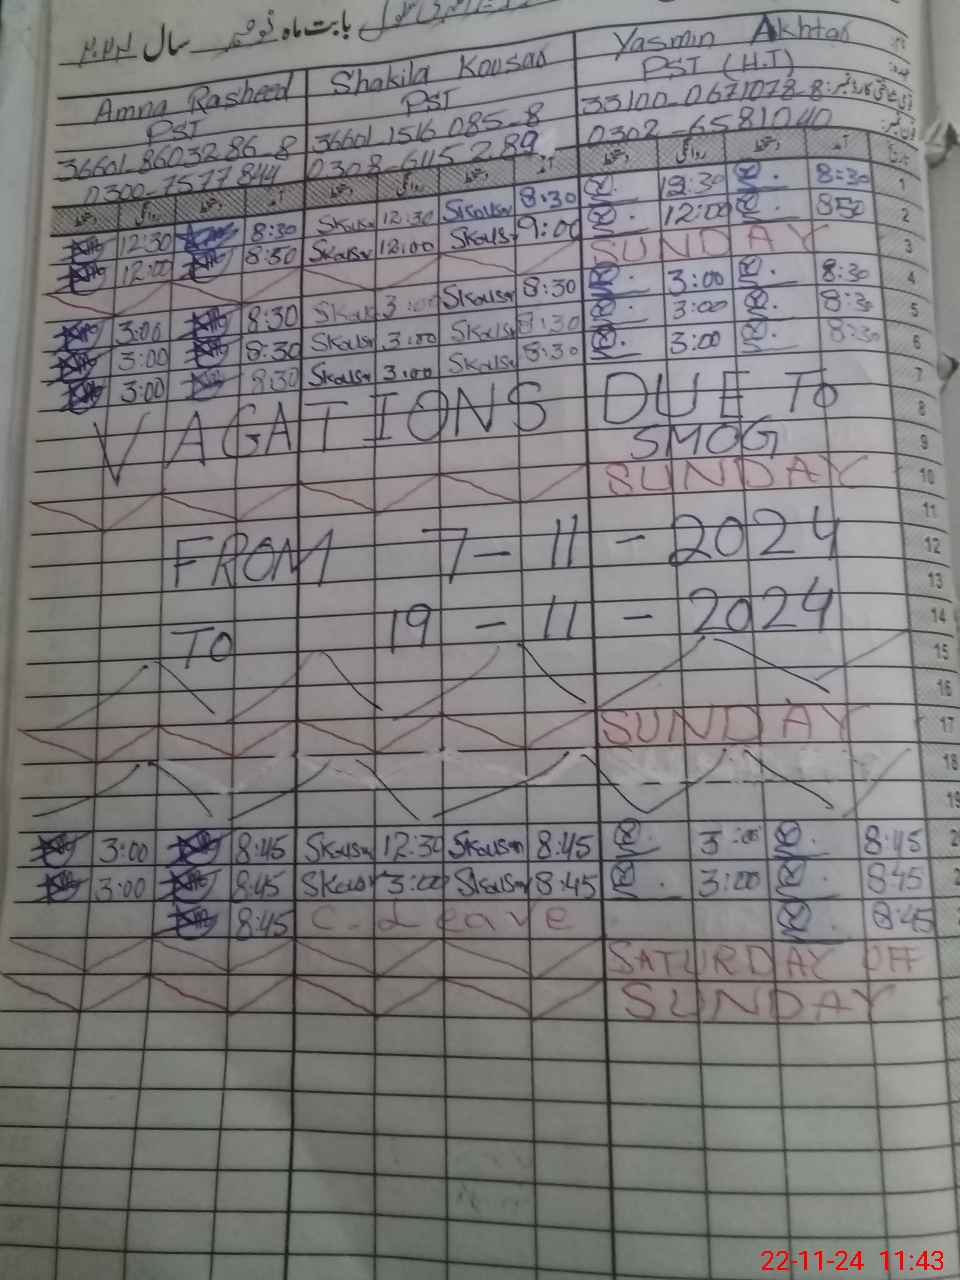 بابت ماہ نومبر سال ۲۰۲۴
Amna Rasheed Shakila Kousar Yasmin Akhtar
PST PST PST (H.T)
36601-8603286-8 36601-1516085-8 33100-0671078-8
0300-7577844 0308-6115289 0302-6581040
12:30 8:30 Skousr 12:30 Skousr 8:30 12:30 8:30 1
12:00 8:50 Skousr 12:00 Skousr 9:00 12:00 850 2
SUNDAY 3
3:00 8:30 3:00 Skousr 8:30 3:00 8:30 4
3:00 8:30 Skousr 3:00 Skousr 8:30 3:00 8:30 5
3:00 8:30 Skousr 3:00 Skousr 8:30 3:00 8:30 6
7
VAGATIONS DUE To 8
SMOG 9
SUNDAY 10
11
FROM 7-11-2024 12
13
TO 19-11-2024 14
15
16
SUNDAY 17
18
19
3:00 8:45 Skousr 12:30 Skousr 8:45 3:00 8:45
3:00 8:45 Skousr 3:00 Skousr 8:45 3:00 845
8:45 C. Leave 8:45
SATURDAY OFF
SUNDAY
22-11-24 11:43